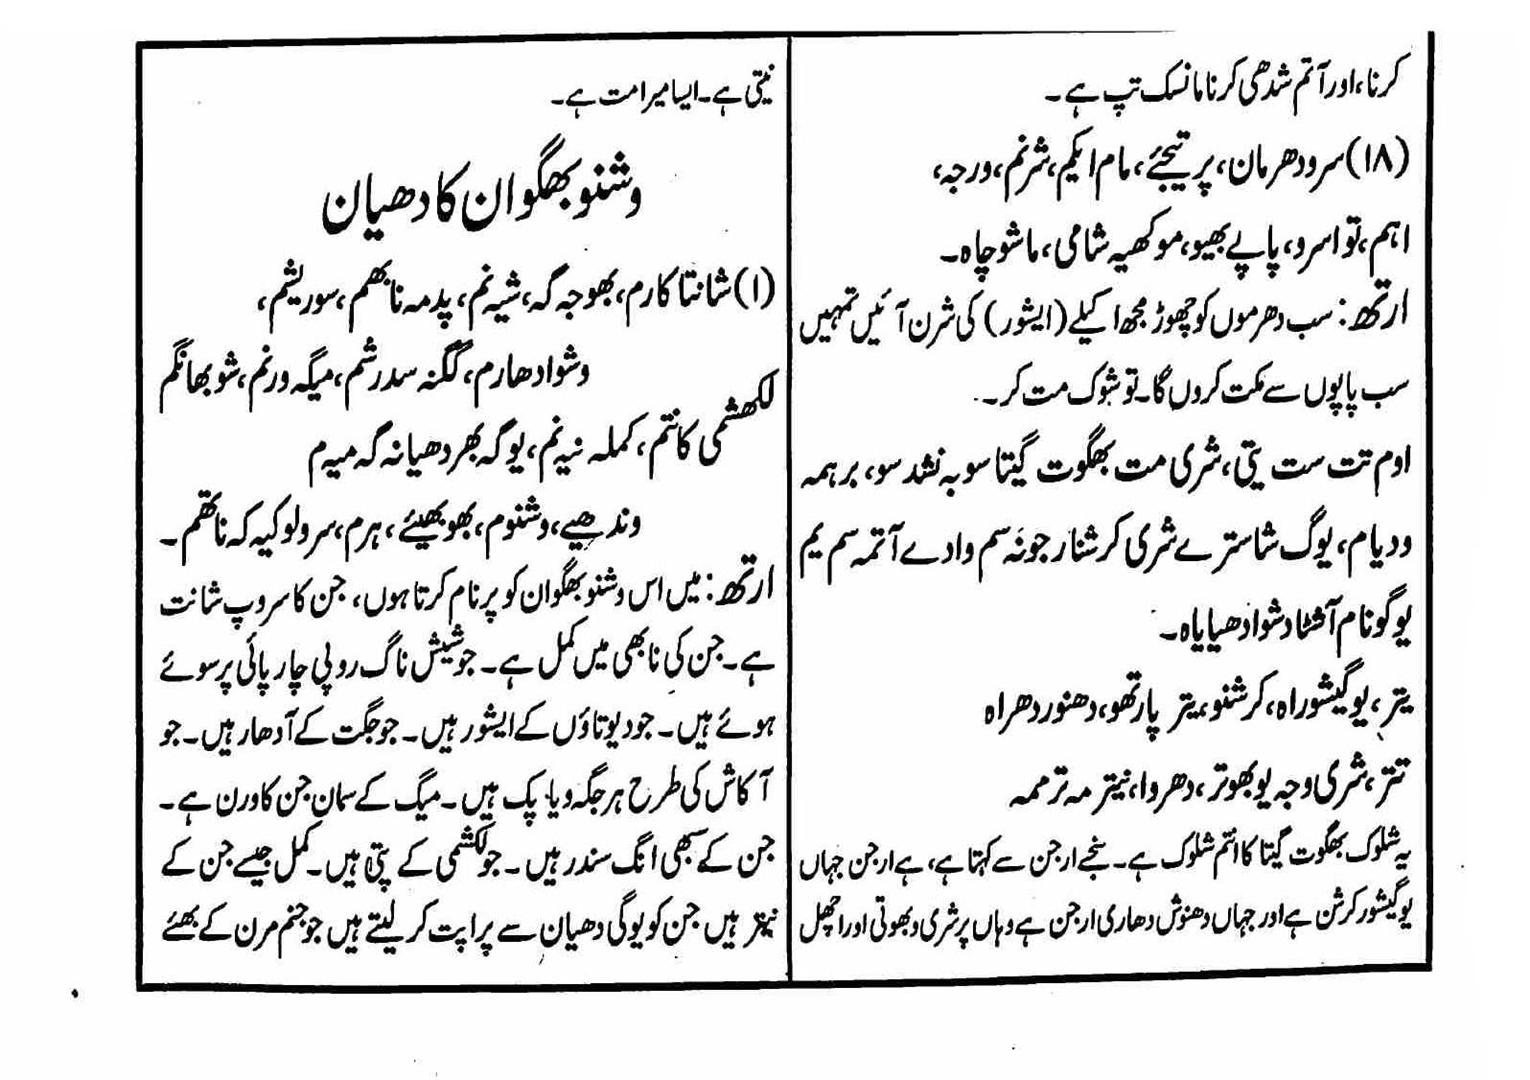 کرنا، اور آتم شدھی کرنا مانسک تپ ہے۔
(۱۸) سرودھرمان، پرتیجئے، مام ایکیم، شرنم، ورجہ،
اہم، تو اسرو، پاپے بھیو، موکھیہ شامی، ماشوچاہ۔
ارتھ: سب دھرموں کو چھوڑ مجھ اکیلے (ایشور) کی شرن آ ئیں تمہیں
سب پاپوں سے مکت کروں گا۔ تو شوک مت کر۔
اوم تت ست یتی، شری مت بھگوت گیتا سوپہ نشد سو، برہمہ
ودیام، یوگ شاسترے شری کرشنارجونہ سم وادے آتمہ سم یم
یوگونام آشٹا دشوادھیایاہ۔
یتر، یوگیشوراہ، کرشنو، یتر پارتھو، دھنوردھراہ
تتر، شری وجہ یوبھوتر، دھروا، نیتر مہ ترممہ
یہ شلوک بھگوت گیتا کا انتم شلوک ہے۔ سنجے ارجن سے کہتا ہے، ہے ارجن جہاں
یوگیشور کرشن ہے اور جہاں دھنوش دھاری ارجن ہے وہاں پر شری وبھوتی اور اچھل
نیتی ہے۔ ایسا میرا مت ہے۔
وشنو بھگوان کا دھیان
(۱) شانتا کارم، بھوجہ گہ، شینم، پدمہ نابھم، سوریشم،
وشوادھارم، گگنہ سدرشم، میگہ ورنم، شوبھانگم
لکھشمی کانتم، کملہ نینم، یوگہ بھر دھیانہ گہ میہ م
وندھیے، وشنوم، بھوبھیئے، ہرم، سرولوکیہ کہ ناتھم۔
ارتھ: میں اس وشنو بھگوان کو پرنام کرتا ہوں، جن کا سروپ شانت
ہے۔ جن کی نابھی میں کمل ہے۔ جو شیش ناگ روپی چارپائی پر سوئے
ہوئے ہیں۔ جو دیوتاؤں کے ایشور ہیں۔ جو جگت کے آدھار ہیں۔ جو
آکاش کی طرح ہر جگہ ویاپک ہیں۔ میگ کے سمان جن کا ورن ہے۔
جن کے سبھی انگ سندر ہیں۔ جو لکشمی کے پتی ہیں۔ کمل جیسے جن کے
نیتر ہیں جن کو یوگی دھیان سے پراپت کر لیتے ہیں جو جنم مرن کے بھئے